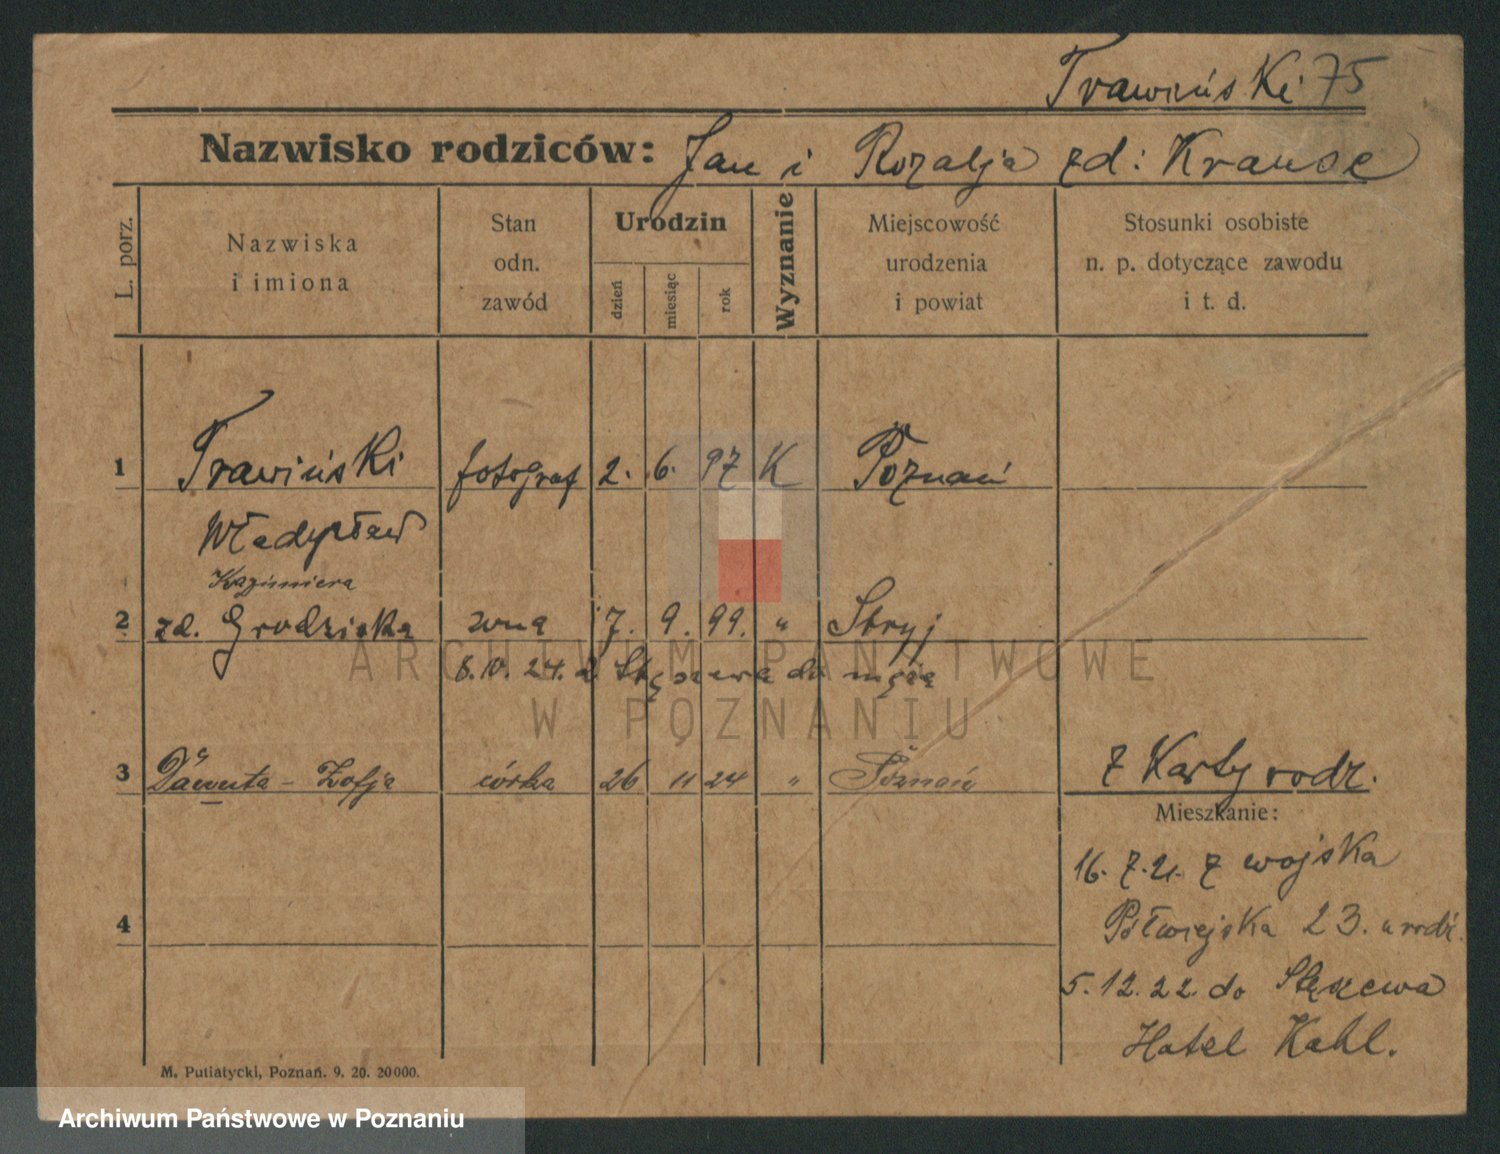 Trawiński 75
Nazwisko rodziców: Jan i Rozalja zd: Krause
L. porz.
Nazwiska i imiona
Stan odn. zawód
Urodzin
dzień
miesiąc
rok
Wyznanie
Miejscowość urodzenia i powiat
Stosunki osobiste n. p. dotyczące zawodu i t. d.
1 Trawiński fotograf 2. 6. 97 K Poznań
Władysław
Kazimiera
2 zd. Grodziska żona 7. 9. 99. " Stryj
24. z Stęszewa do męża
3 Danuta - Zofja córka 26 11 24 " Poznań
z Karty rodz.
Mieszkanie:
16. 7. 21. z wojska
Półwiejska 23. u rodz.
4
5. 12. 22. do Stęszewa
Hotel Kahl.
M. Putiatycki, Poznań. 9. 20. 20000.
ARCHIWUM PAŃSTWOWE
W POZNANIU
Archiwum Państwowe w Poznaniu